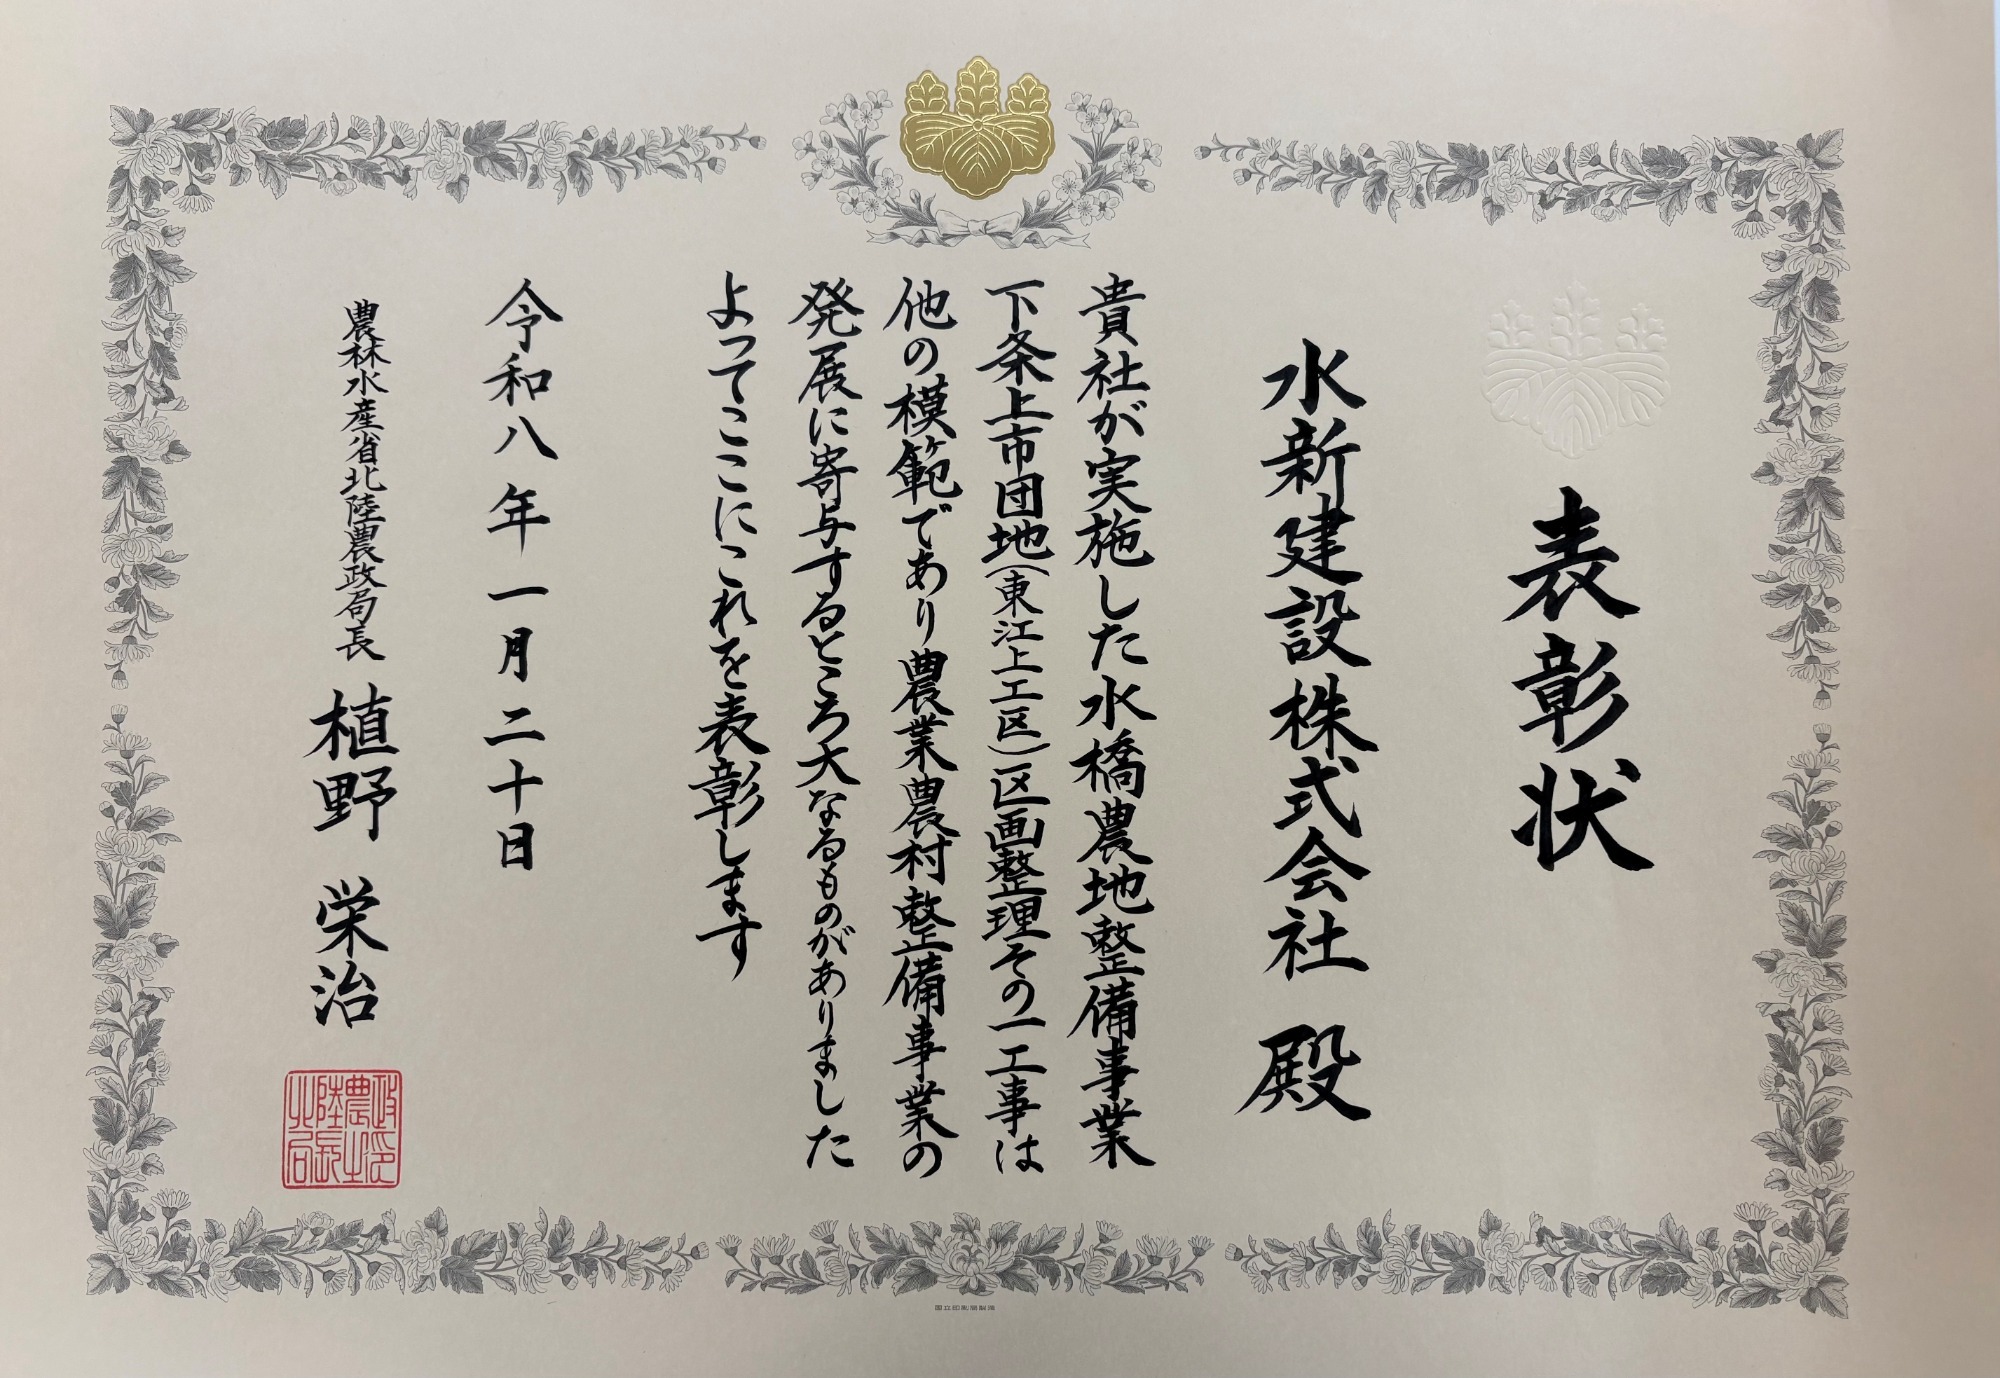 表彰状
水新建設株式会社 殿
貴社が実施した水橋農地整備事業
下条上市団地(東江上工区)区画整理その一工事は
他の模範であり農業農村整備事業の
発展に寄与するところ大なるものがありました
よってここにこれを表彰します
令和八年一月二十日
農林水産省北陸農政局長 植野 栄治
国立印刷局製造